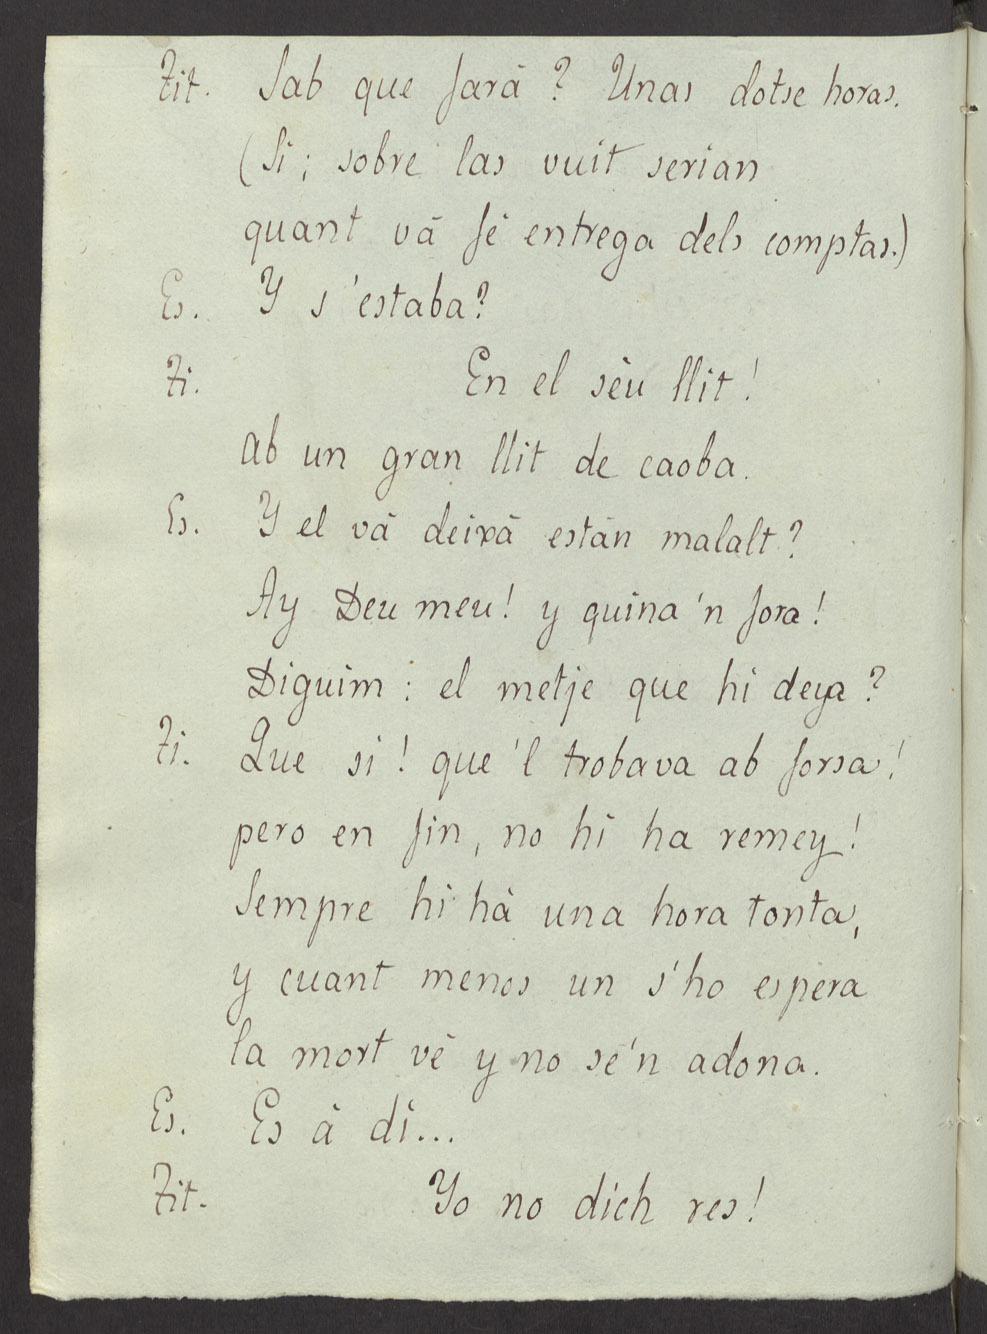 Tit. Sab que fará? Unas dotse horas.
(Si; sobre las vuit serian
quant vá fé entrega dels comptas.)
Es. Y s'estaba?
Ti. En el sèu llit!
Ab un gran llit de caoba.
Es. Y el vá deixá están malalt?
Ay Deu meu! y quina 'n fora!
Diguim: el metje que hi deya?
Ti. Que si! que 'l trobava ab forsa!
pero en fin, no hi ha remey!
Sempre hi hà una hora tonta,
y cuant menos un s'ho espera
la mort vé y no se'n adona.
Es. Es á di...
Tit. Yo no dich res!